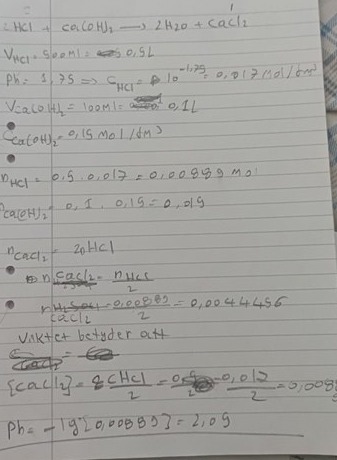 HCl + ca(OH)₂ → 2H₂O + CaCl₂
V HCl = 500ml = 0,5L
Ph = 1,75 ⇒ C HCl = 10^-1,75 = 0,017 mol/dm³
V ca(OH)₂ = 100ml = 0,1L
C ca(OH)₂ = 0,15 mol/dm³
n HCl = 0,5 · 0,017 = 0,00889 mol
n ca(OH)₂ = 0,1 · 0,15 = 0,015
n cacl₂ = 2nHCl
n cacl₂ = nHCl/2
cacl₂ = 0,00889/2 = 0,0044456
betyder att
[cacl₂] = cHCl/2 = 0,017/2 = 0,008
Ph = -lg[0,00889] = 2,05